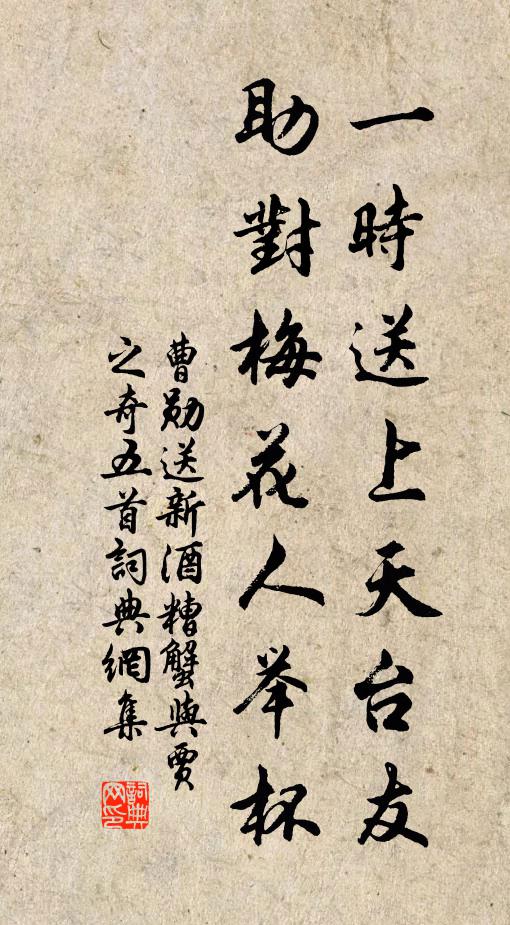 一時送上天台友
助對梅花人举杯
曹勛送新酒糟蟹與賈
之奇五首詞典網集
詞典网印